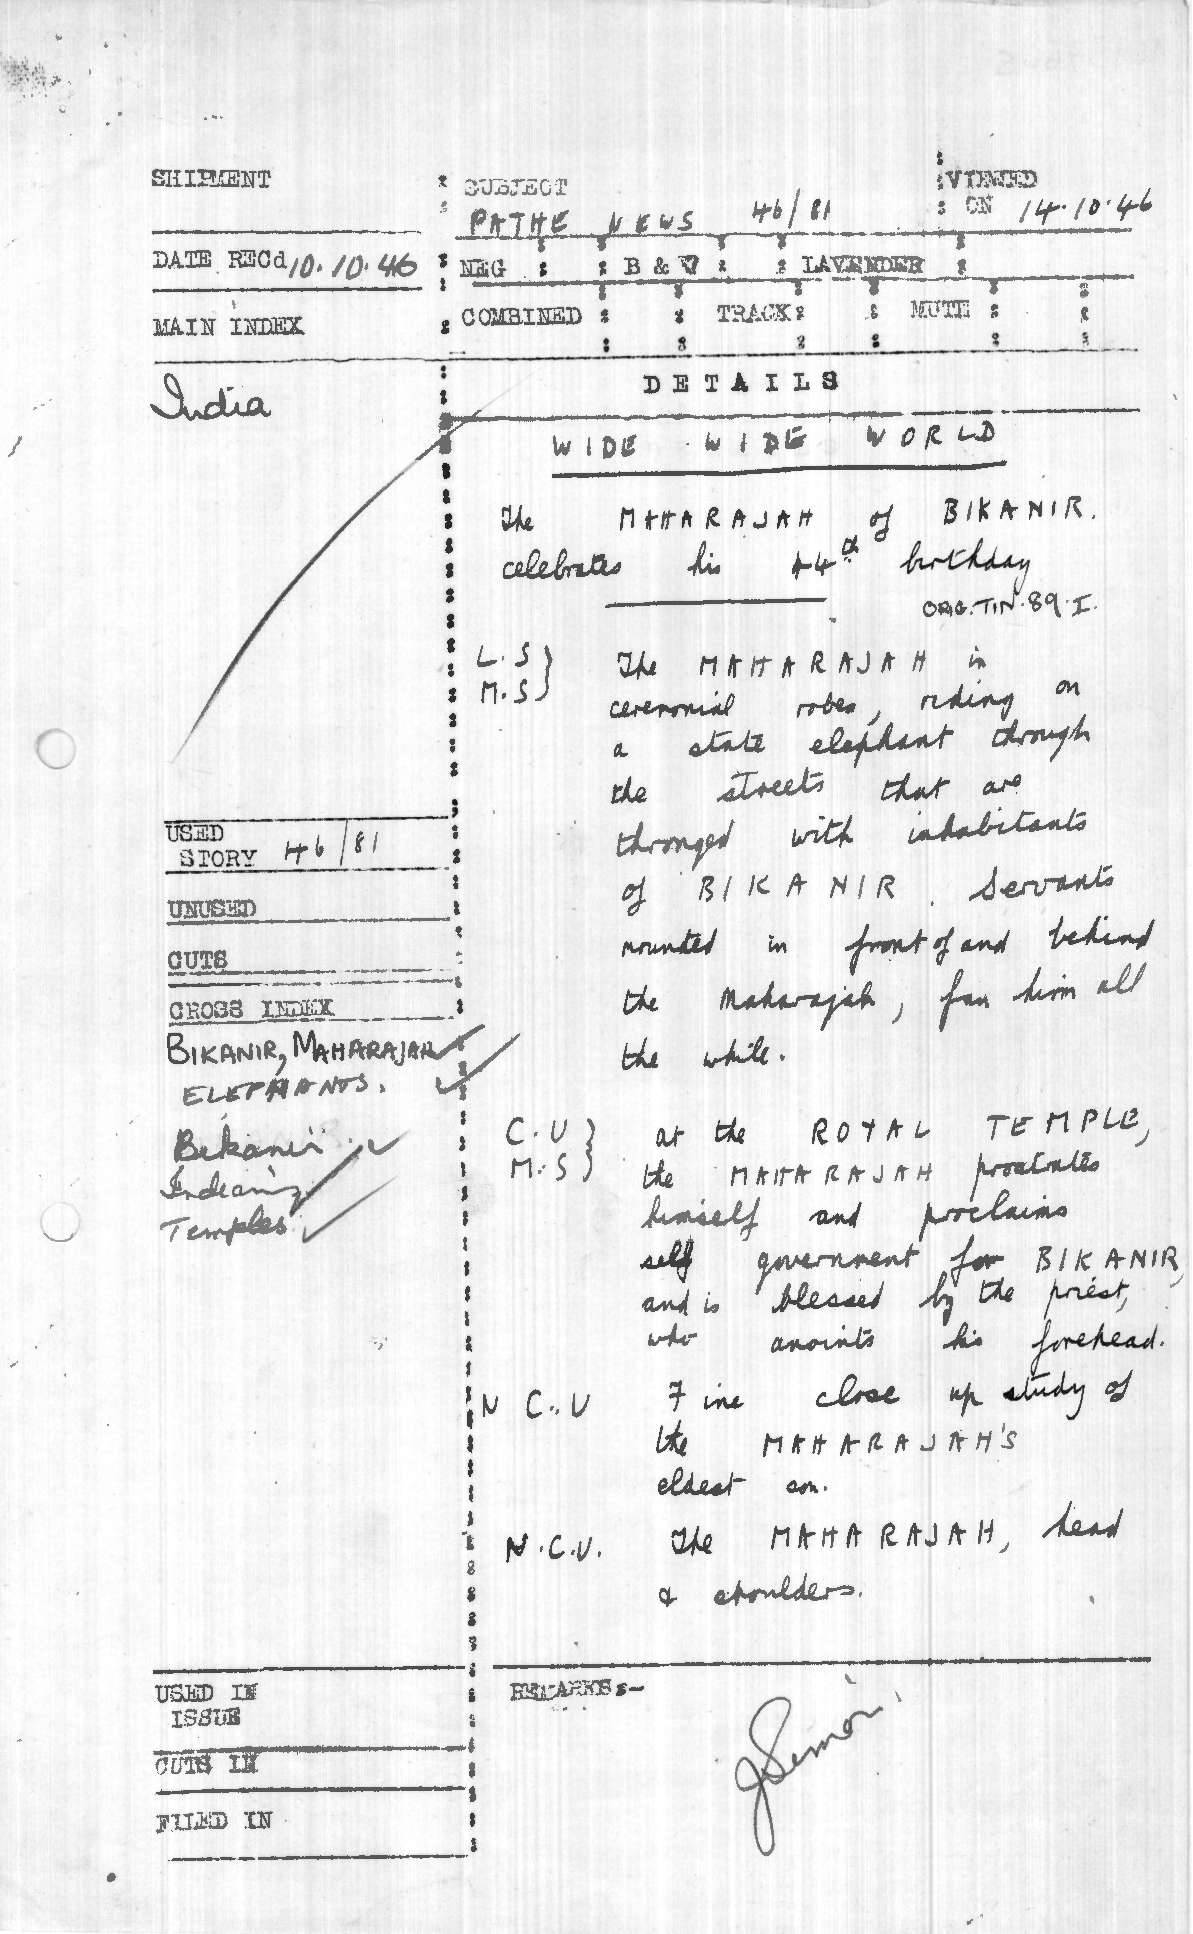 SHIPMENT
SUBJECT
PATHE NEWS 46/81
VIEWED
ON 14.10.46
DATE RECd 10.10.46
NEG B & W LAVENDER
MAIN INDEX
COMBINED TRACK MUTE
India
DETAILS
WIDE WIDE WORLD
The MAHARAJAH of BIKANIR.
celebrates his 44th birthday
ORG.TIN.89.I.
L.S
M.S
The MAHARAJAH in
ceremonial robes, riding on
a state elephant through
the streets that are
thronged with inhabitants
of BIKANIR. Servants
mounted in front of and behind
the Maharajah, fan him all
the while.
USED
STORY 46/81
UNUSED
CUTS
CROSS INDEX
BIKANIR, MAHARAJAH
ELEPHANTS.
Bikanir
Indian
Temples
C.U
M.S
at the ROYAL TEMPLE,
the MAHARAJAH prostrates
himself and proclaims
self government for BIKANIR,
and is blessed by the priest,
who anoints his forehead.
M C.U Fine close up study of
the MAHARAJAH'S
eldest son.
M.C.U. The MAHARAJAH, head
& shoulders.
USED IN
ISSUE
CUTS IN
FILED IN
REMARKS:-